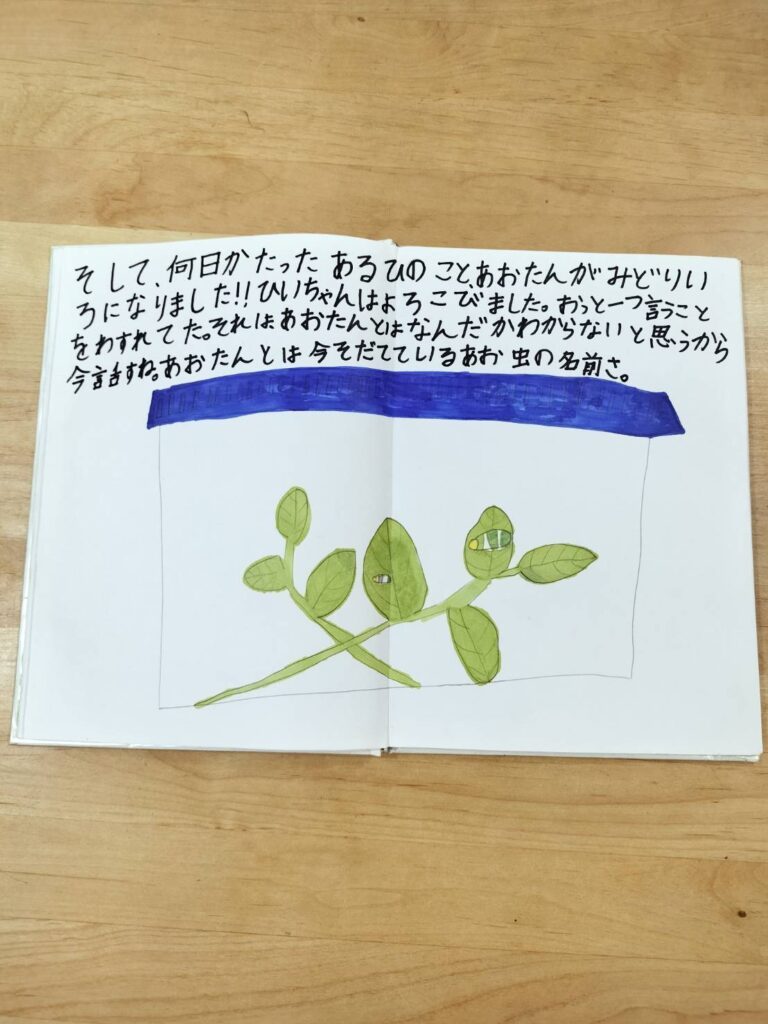 そして、何日かたったあるひのこと、あおたんがみどりい
ろになりました!!ひいちゃんはよろこびました。おっと一つ言うこと
をわすれてた。それは、あおたんとはなんだかわからないと思うから
今話すね。あおたんとは今そだてているあお虫の名前さ。